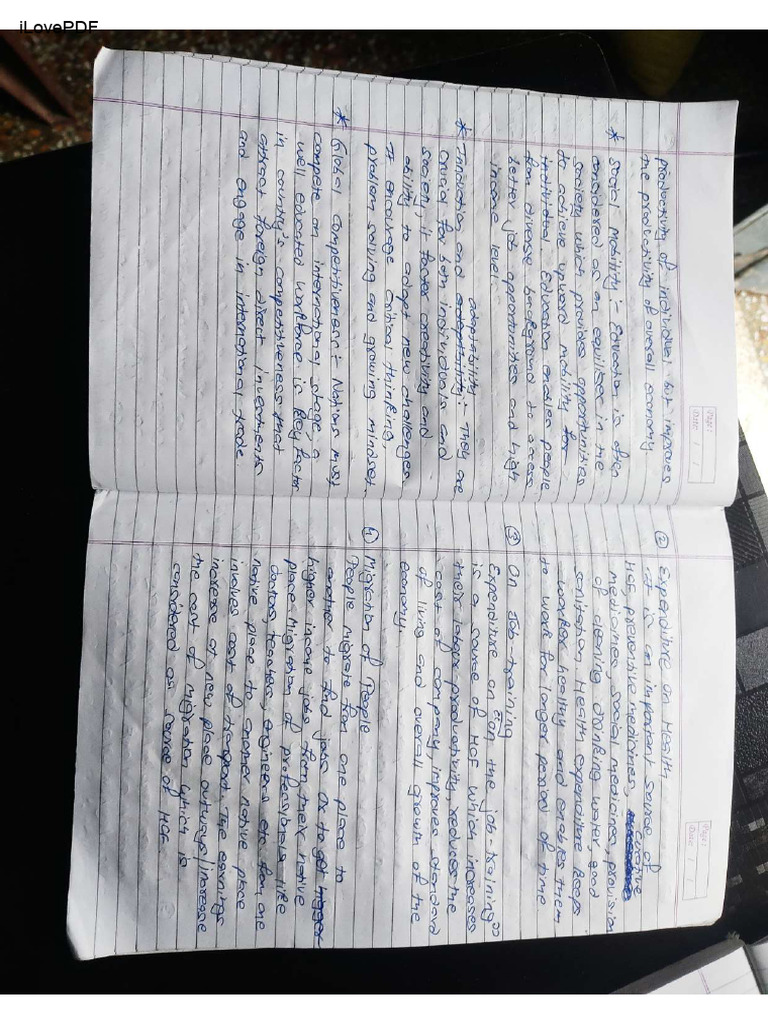 iLovePDF
Page:
Date: / /
productivity of individual but improves
the productivity of overall economy
* Social Mobility :- Education is often
considered as an equiliser in the
society which provides opportunities
to achieve upward mobility for
individual. Education enables people
from diverse background to access
better job opportunities and high
income level.
adaptability
* Innovation and adaptibility :- They are
crucial for both individuals and
society, it foster creativity and
ability to adapt new challenges
It encourage critical thinking,
problem solving and growing mindset
* Global competitiveness :- Nations must
compete on international stage, a
well educated workforce is key factor
in country's competitiveness that
attract foreign direct investments
and engage in international trade.
Page:
Date: / /
② Expenditure on Health
It is an important source of
HCF, preventive medicines, curative
medicines, social medicines, provision
of cleaning drinking water, good
sanitation Health expenditure keeps
worker healthy and enables them
to work for longer period of time
③ On Job-training
Expenditure on "on the job-training"
is a source of HCF which increases
their labour productivity, reduces the
cost of company, improves standard
of living and overall growth of the
economy.
④ Migration of People
People migrate from one place to
another to find jobs or to get
higher income jobs than their native
place. Migration of professionals like
doctors, teachers, engineers etc from one
native place to another native place
involves cost of transport. The earnings
increase at new place outways increase
the cost of migration which is
considered as source of HCF